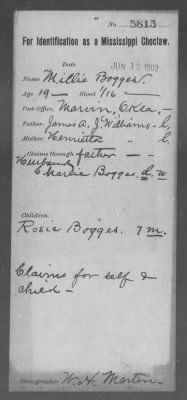 No. 5815
For Identification as a Mississippi Choctaw.
Date JUN 13 1902
Name Millie Bogges.
Age 19 — Blood 1/16 —
Post-Office, Marvin, Okla. —
Father: James A. J. Williams - l,
Mother: Henrietta " l,
Claims through father —
Husband
Charlie Bogges. l, w
Children:
Rosie Bogges. 7 m.
Claims for self &
child —
Stenographer W. H. Martin.